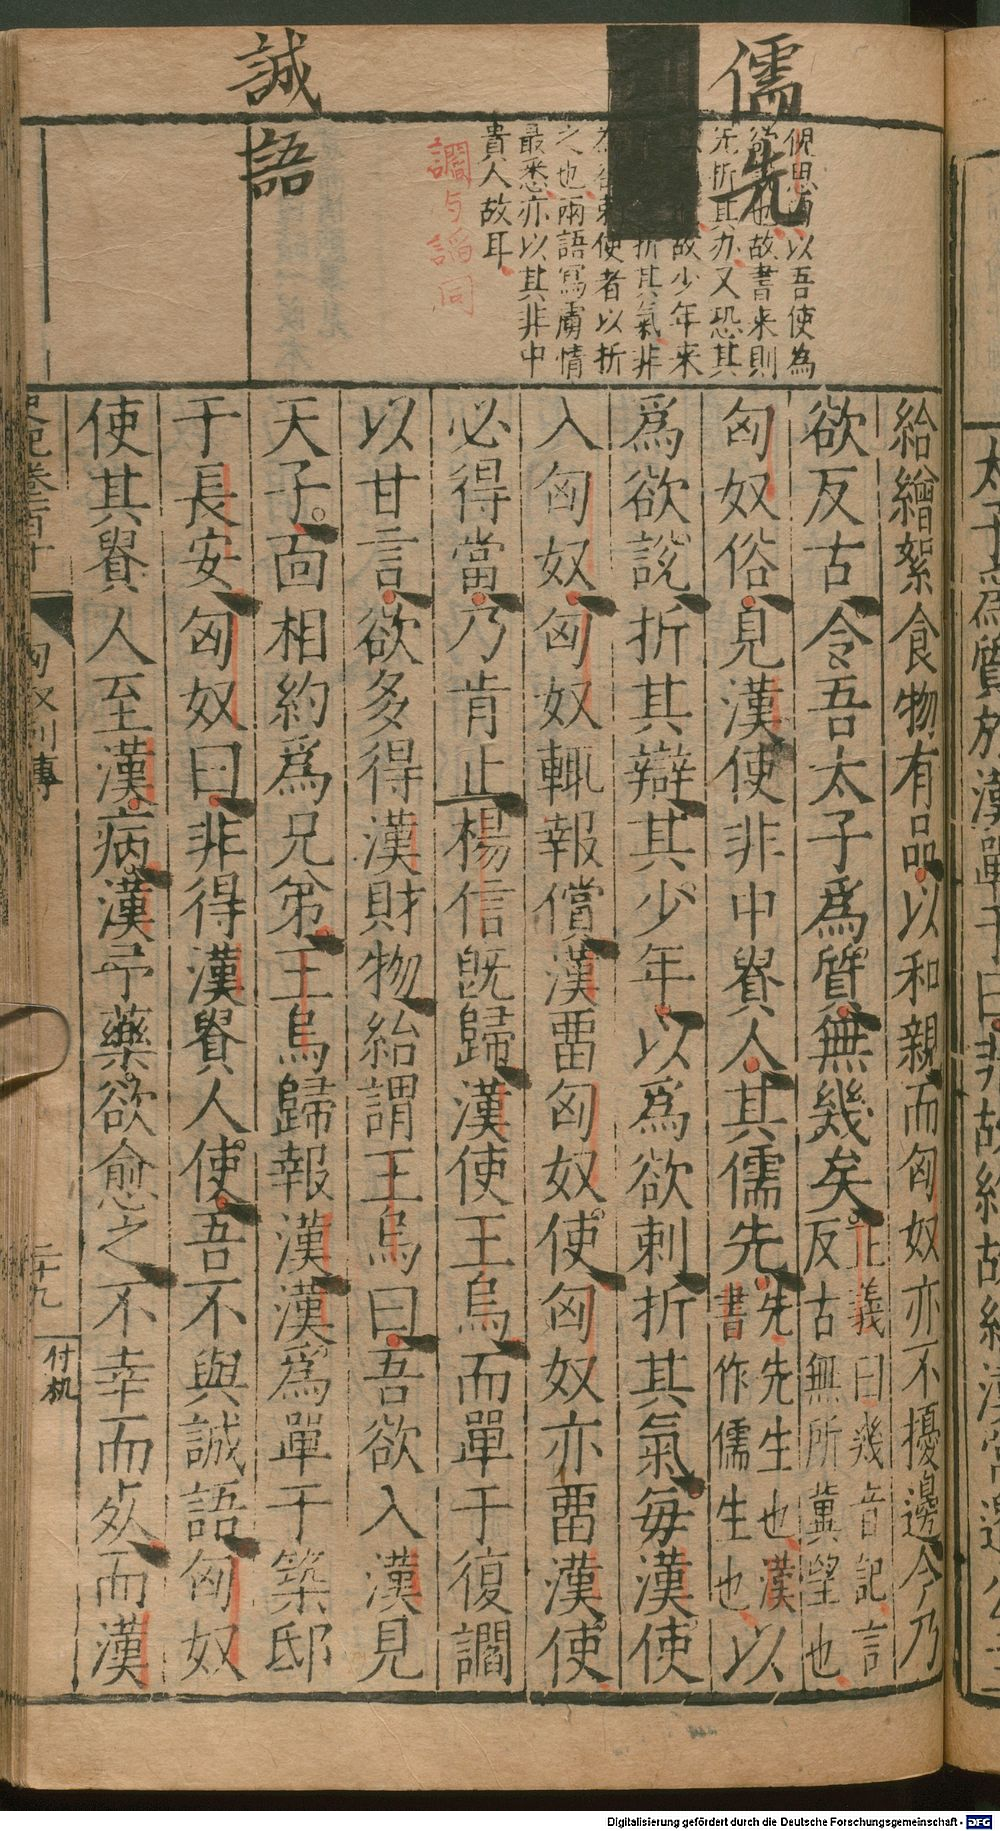 儒先
誠語
倪思曰以吾使為
欲說也故書來則
先折其辯又恐其
故少年來
折其氣非
刺使者以折
之也兩語寫虜情
最悉亦以其非中
貴人故耳
讇与謟同
給繒絮食物有品以和親而匈奴亦不擾邊今乃
欲反古令吾太子爲質無幾矣正義曰幾音記言
反古無所冀望也
匈奴俗見漢使非中貴人其儒先先先生也漢
書作儒生也以
爲欲說折其辯其少年以爲欲刺折其氣每漢使
入匈奴匈奴輙報償漢畱匈奴使匈奴亦畱漢使
必得當乃肯止楊信旣歸漢使王烏而單于復讇
以甘言欲多得漢財物紿謂王烏曰吾欲入漢見
天子面相約爲兄弟王烏歸報漢漢爲單于築邸
于長安匈奴曰非得漢貴人使吾不與誠語匈奴
使其貴人至漢病漢予藥欲愈之不幸而死而漢
史記卷百十
匈奴列傳
二十九
付机
太子爲質於漢單于曰非故約故約漢常遣公主
Digitalisierung gefördert durch die Deutsche Forschungsgemeinschaft - DFG